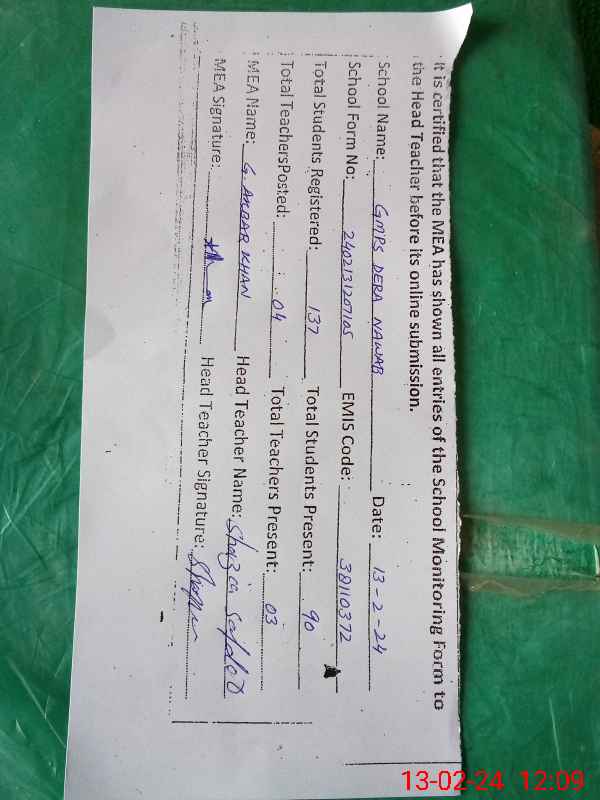 It is certified that the MEA has shown all entries of the School Monitoring Form to
the Head Teacher before its online submission.
School Name: GMPS DERA NAWAB Date: 13-2-24
School Form No: 2402131207105 EMIS Code: 38110372
Total Students Registered: 137 Total Students Present: 90
Total TeachersPosted: 04 Total Teachers Present: 03
MEA Name: G. AKBAR KHAN Head Teacher Name: Shazia Safdar
MEA Signature: Head Teacher Signature:
13-02-24 12:09